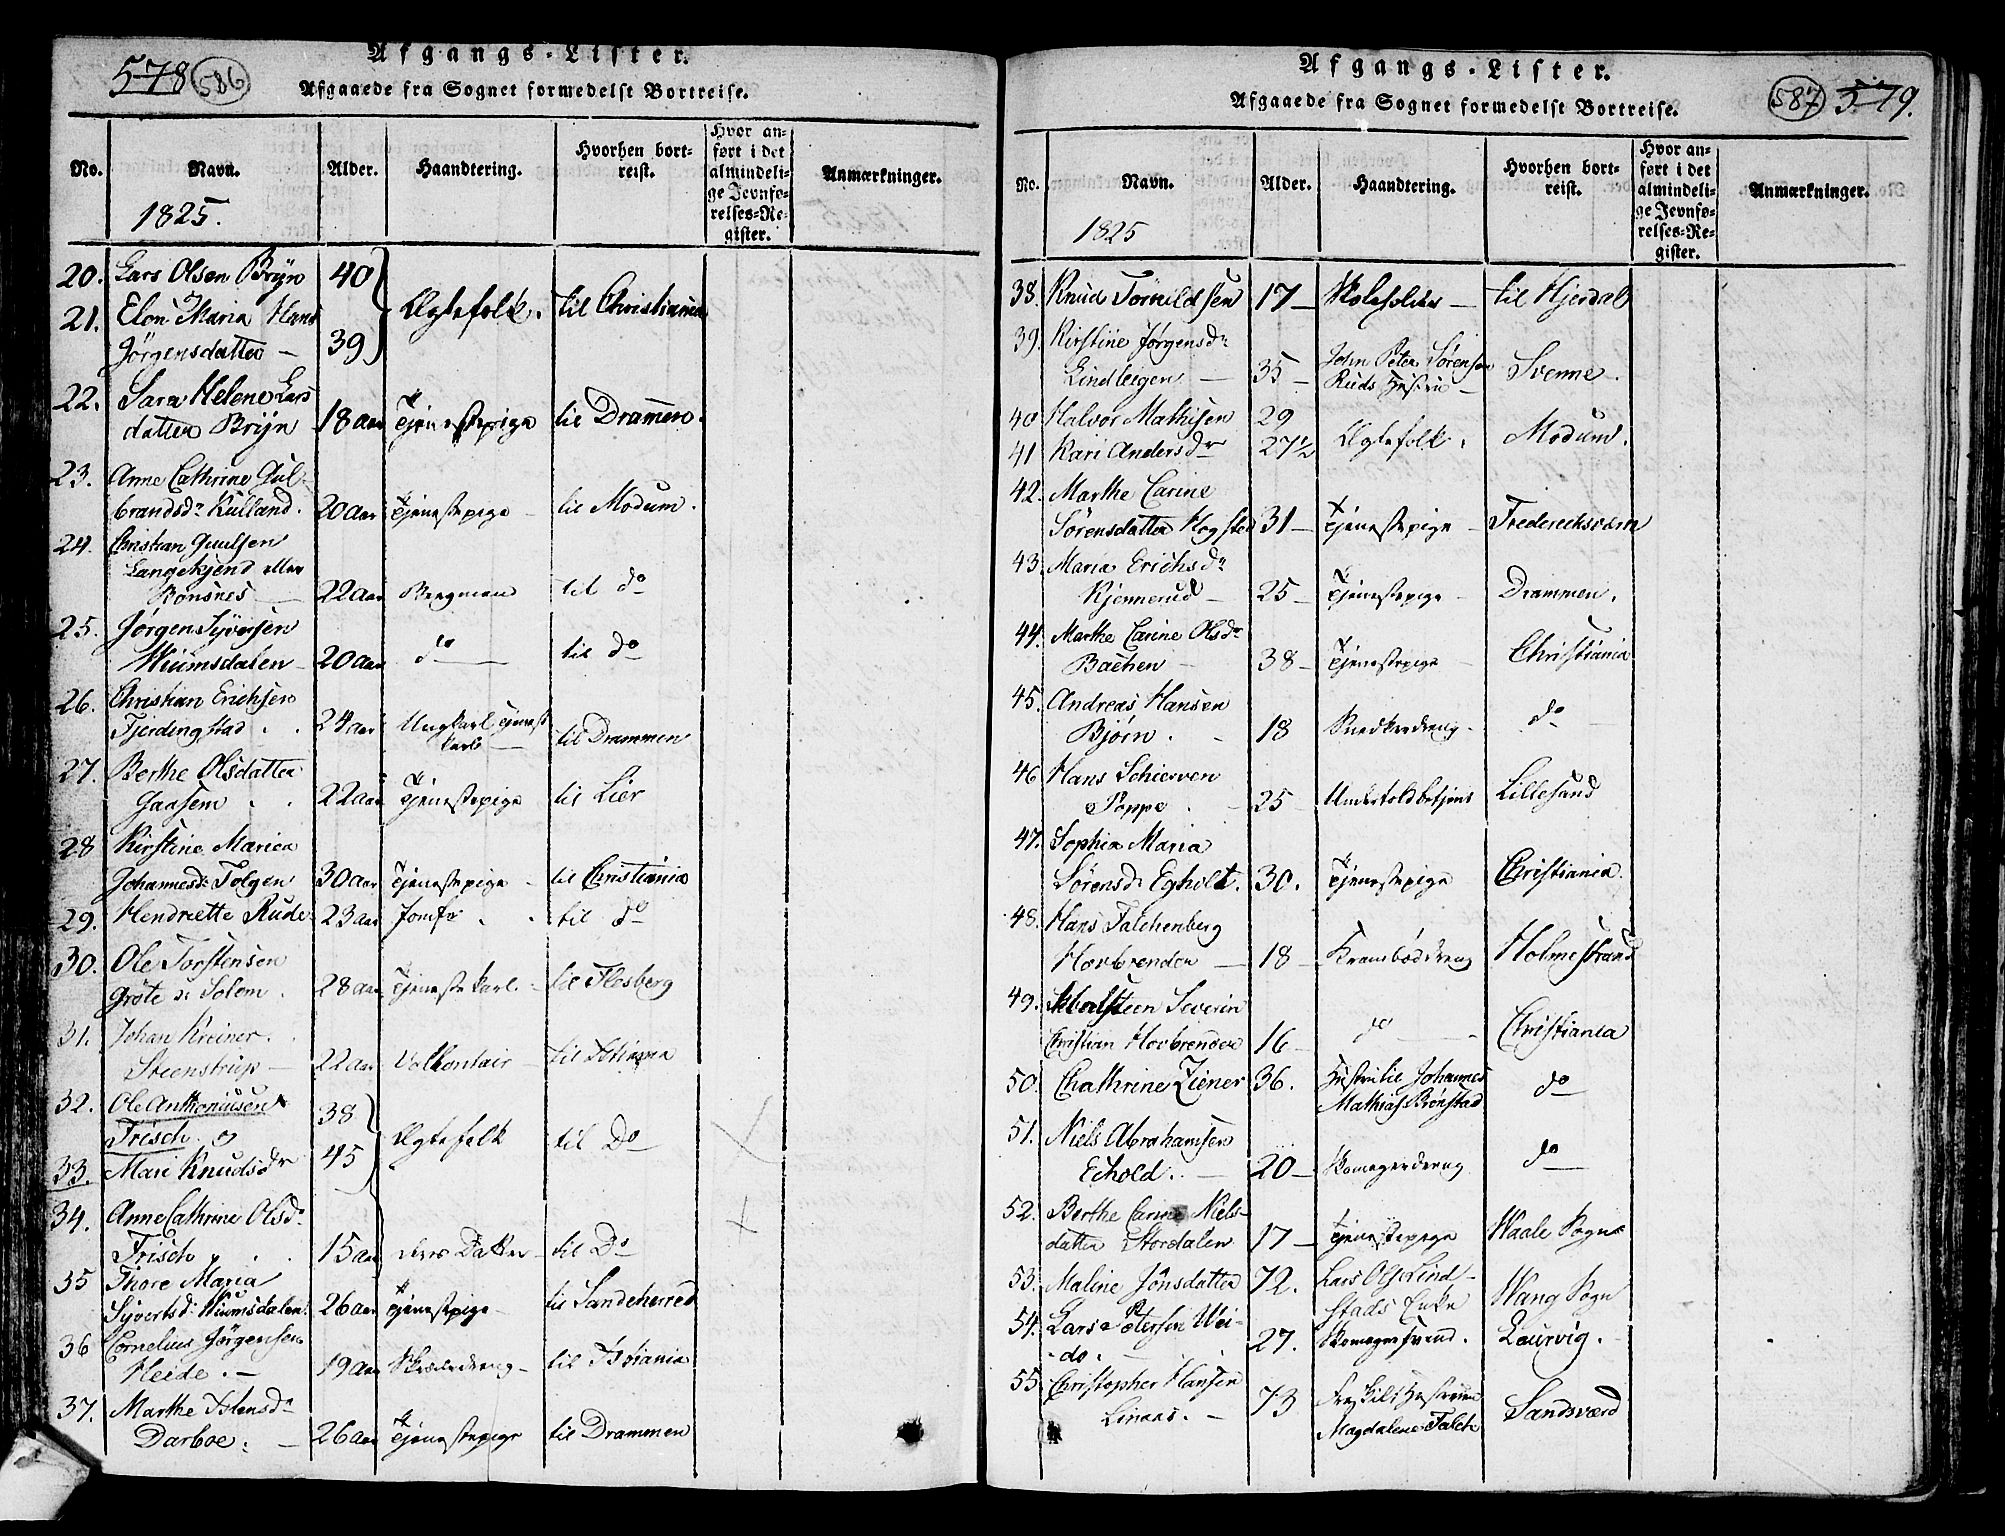 578 586
Afgangs-Lister.
Afgaaede fra Sognet formedelst Bortreise.
No. Navn. Alder. Haandtering. Hvorhen bortreist. Hvor anført i det almindelige Jevnførelses-Register. Anmærkninger.
1825.
20. Lars Olsen Brÿn 40
21. Elon Maria Hans
Jörgensdatter 39 Ægtefolk. til Christiania
22. Sara Helene Lars
datter Brÿn 18 aar Tjenestepige til Drammen.
23. Anne Cathrine Gul-
brandsdr Kulland. 20 aar Tjenestepige til Modum.
24. Christian Guulsen
Langekjend eller
Rönsnes 22 aar Bergmand til do
25. Jörgen Syversen
Wiumsdalen 20 aar do til do
26. Christian Erichsen
Fjerdingstad 24 aar Ungkarl Tjenest
karl til Drammen
27. Berthe Olsdatter
Gaasem 22 aar Tjenestepige til Lier
28 Kirstine Maria
Johannesdr Tolgen 30 aar Tjenestepige til Christiania
29. Hendriette Rude 23 aar Jomfr. til do
30. Ole Torstensen
Gröte Solem. 28 aar Tjenestekarl. til Flesberg
31. Johan Kreiner
Steenstrup 22 aar Vollontair til
32. Ole Anthoniusen 38
Frisch og
33. Mari Knudsdr 45 Ægtefolk til Do
34. Anne Cathrine Olsdr
Frisch 15 aar deres Datter til Do
35 Thore Maria
Syvertsdr Wiumsdalen 26 aar Tjenestepige til Sandeherred
36 Cornelius Jörgensen
Heide. 19 aar til
37. Marthe
Darboe. 26 aar Tjenestepige til Drammen
Afgangs-Lister.
587 579.
Afgaaede fra Sognet formedelst Bortreise.
No. Navn. Alder. Haandtering. Hvorhen bortreist. Hvor anført i det almindelige Jevnførelses-Register. Anmærkninger.
1825
38. Knud Tornildsen 17 Skoleholder til Hjerdal
39. Kirstine Jørgensdr
Lindteigen 35 John Peter Sörensen
Ruds Hustrue Svenne.
40 Halvor Mathisen 29
41 Kari Andersdr 27½ Ægtefolk. Modum.
42. Marthe Carine
Sörensdatter Hogstad 31 Tjenestepige Frederichsværn
43. Maria Erichsdr
Kjennerud 25 Tjenestepige Drammen.
44. Marthe Carine Olsdr
Bachen 38 Tjenestepige Christiania
45. Andreas Hansen
Bjørn. 18 Snedkerdreng do
46 Hans Schierven
Poppe 25 Undertoldbetjent Lillesand
47. Sophia Maria
Sørensdr Egholt. 30. Tjenestepige Christiania.
48. Hans Falchenberg
Hovbrender 18 Kramboddreng Holmestrand
49. Severin
Christian Hovbrender 16 do Christiania
50. Chathrine Ziener 36. Hustru til Johannes
Mathias Brönstad do
51. Niels Abrahamsen
Echold. 20 Skomagerdreng do
52. Berthe Carine Niels-
datter Stordalen 17 Tjenestepige Waale Sogn
53. Maline Jönsdatter 72. Lars Ols Lind-
stads Enke Wang Sogn
54. Lars Petersen Wei-
do. 27. Skomagersvend. Laurvig.
55. Christopher Hansen
Linaas. 73 Hustrue
Magdalene Falch Sandsværd